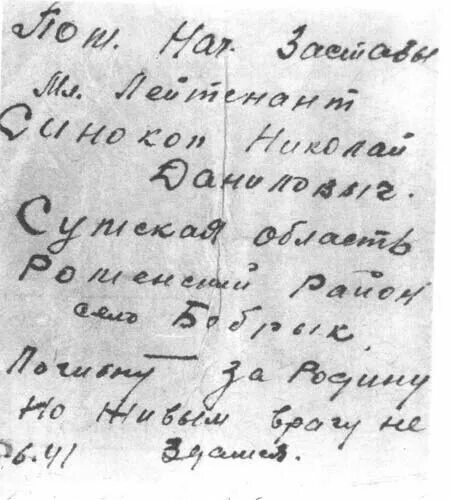 Пом. Нач. Заставы
Мл. Лейтенант
Синокоп Николай
Даниловыч.
Сумская область
Роменский Район
село Бобрык
Погибну за Родину
Но живым врагу не
26.41 здамся.